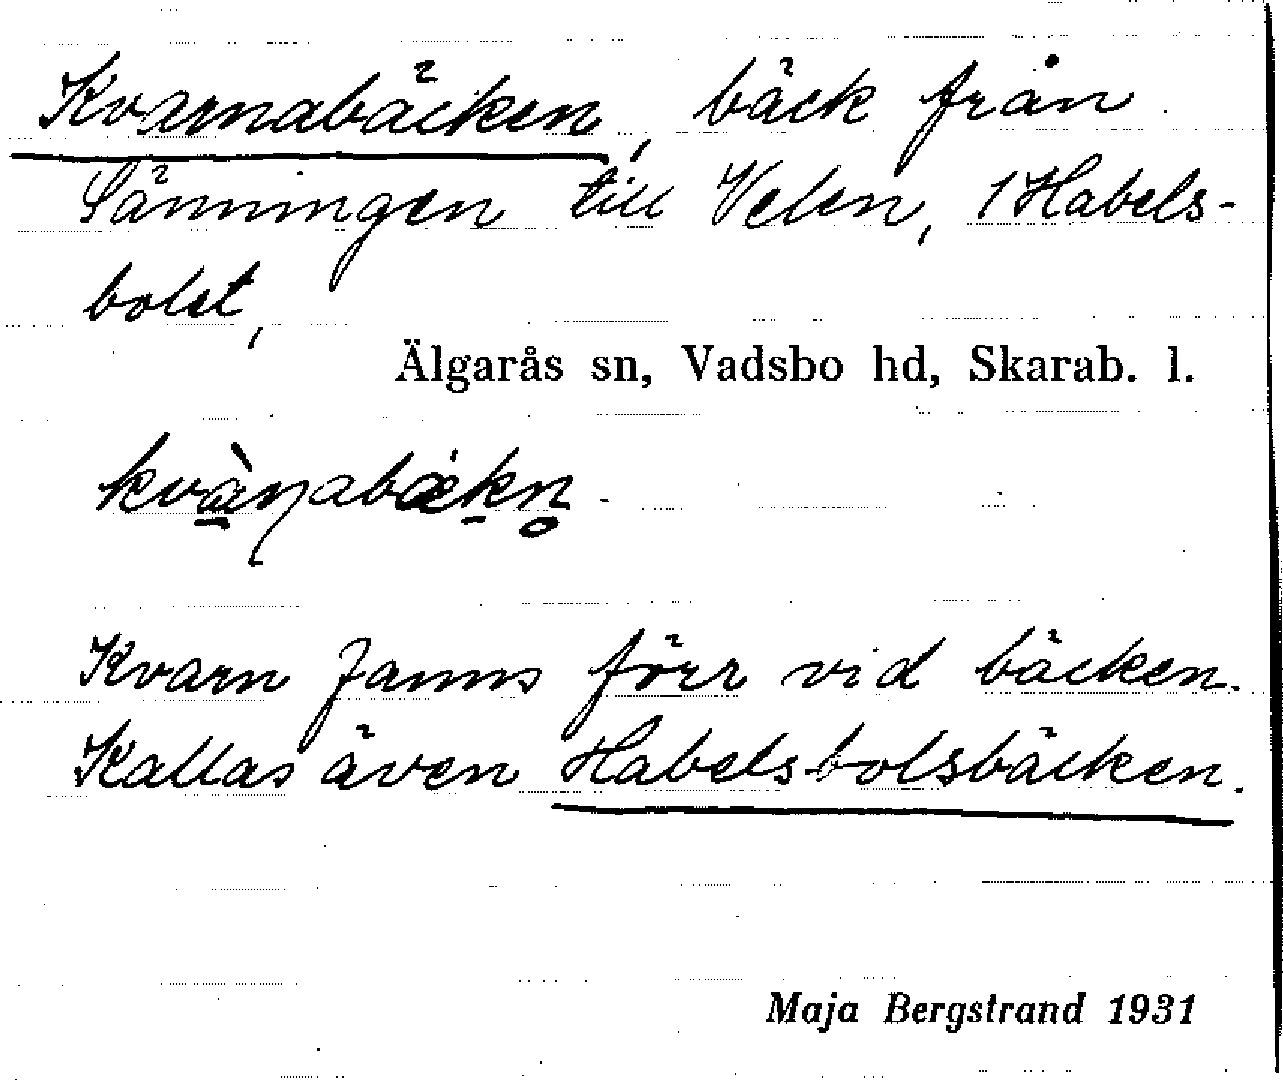 Kvarnabäcken, bäck från
Sänningen till Velen, 1 Habels-
bolet,
Älgarås sn, Vadsbo hd, Skarab. l.
kvàɳabækn̥
Kvarn fanns förr vid bäcken.
Kallas även Habelsbolsbäcken.
Maja Bergstrand 1931